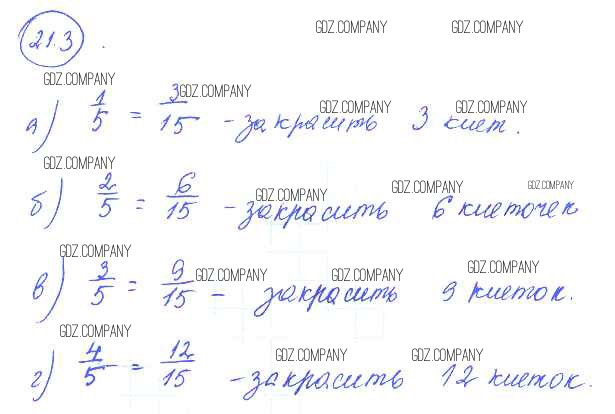 GDZ.COMPANY GDZ.COMPANY
21.3 .
GDZ.COMPANY GDZ.COMPANY
GDZ.COMPANY GDZ.COMPANY
а) 1/5 = 3/15 - закрасить 3 клет.
GDZ.COMPANY
GDZ.COMPANY GDZ.COMPANY GDZ.COMPANY
б) 2/5 = 6/15 - закрасить 6 клеточек
GDZ.COMPANY
GDZ.COMPANY GDZ.COMPANY GDZ.COMPANY
в) 3/5 = 9/15 - закрасить 9 клеток.
GDZ.COMPANY
GDZ.COMPANY GDZ.COMPANY
г) 4/5 = 12/15 - закрасить 12 клеток.